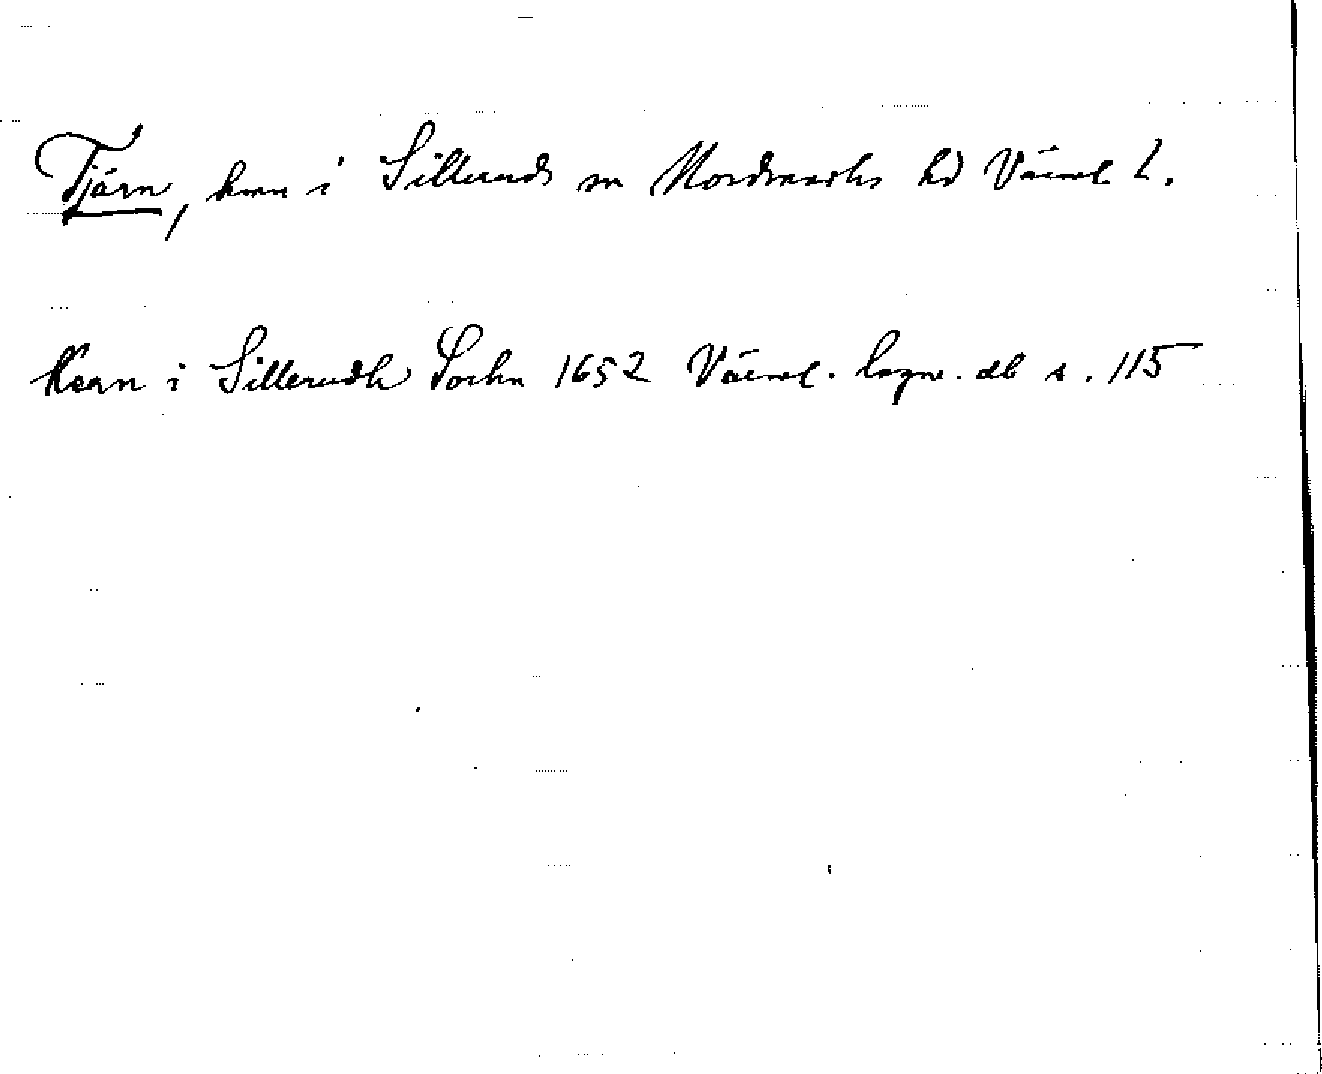 Tjärn, hmn i Sillerud sn Nordmarks hd Värml L.
Kärn i Sillerudh Sochn 1652 Värml. lagm. db s. 115